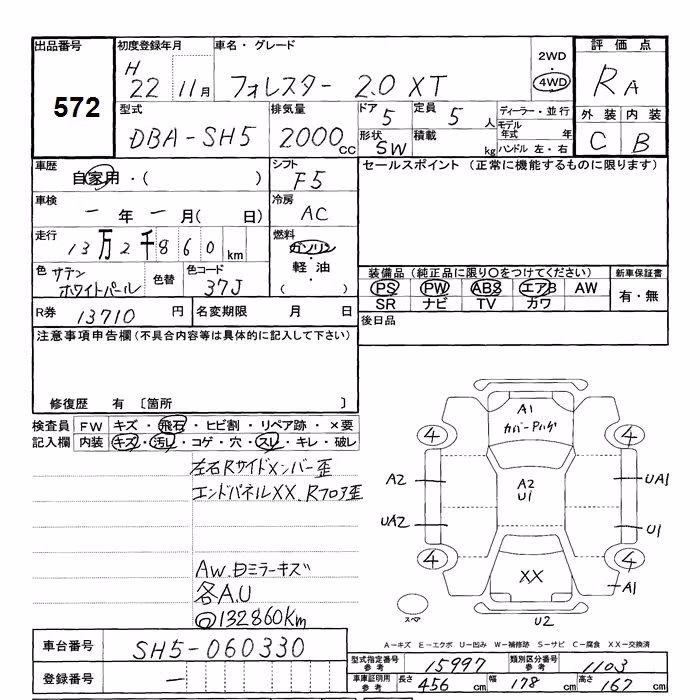 出品番号
572
初度登録年月
H
22 11月
車名・グレード
フォレスター 2.0 XT
2WD
・
4WD
評価点
RA
型式
DBA-SH5
排気量
2000cc
ドア
5
定員
5人
形状
SW
積載
kg
ディーラー・並行
モデル年式 年
ハンドル 左・右
外装 内装
C B
車歴
自家用・( )
シフト
F5
セールスポイント (正常に機能するものに限ります)
車検
ー年ー月( 日)
冷房
AC
走行
13万2千860km
燃料
ガソリン
・
軽油
・
( )
色 サテンホワイトパール
色替
色コード
37J
装備品(純正品に限り〇をつけてください)
PS PW ABS エアB AW
SR ナビ TV カワ
新車保証書
有・無
R券 13710円
名変期限 月 日
後日品
注意事項申告欄(不具合内容等は具体的に記入して下さい)
修復歴 有 〔箇所 〕
検査員記入欄
FW キズ・飛石・ヒビ割・リペア跡・×要
内装 キズ・汚レ・コゲ・穴・スレ・キレ・破レ
左右Rサイドメンバー歪
エンドパネルXX、Rフロア歪
AW、ミラーキズ
各A.U
◎132860Km
A1
4
4
A2
A2
U1
UA1
UA2
U1
4
4
XX
A1
スペア
U2
A-キズ E-エクボ U-凹み W-補修跡 S-サビ C-腐食 XX-交換済
車台番号 SH5-060330
登録番号 ー
型式指定番号 参考 15997
類別区分番号 参考 1103
車庫証明用 参考 長さ 456cm 幅 178cm 高さ 167cm